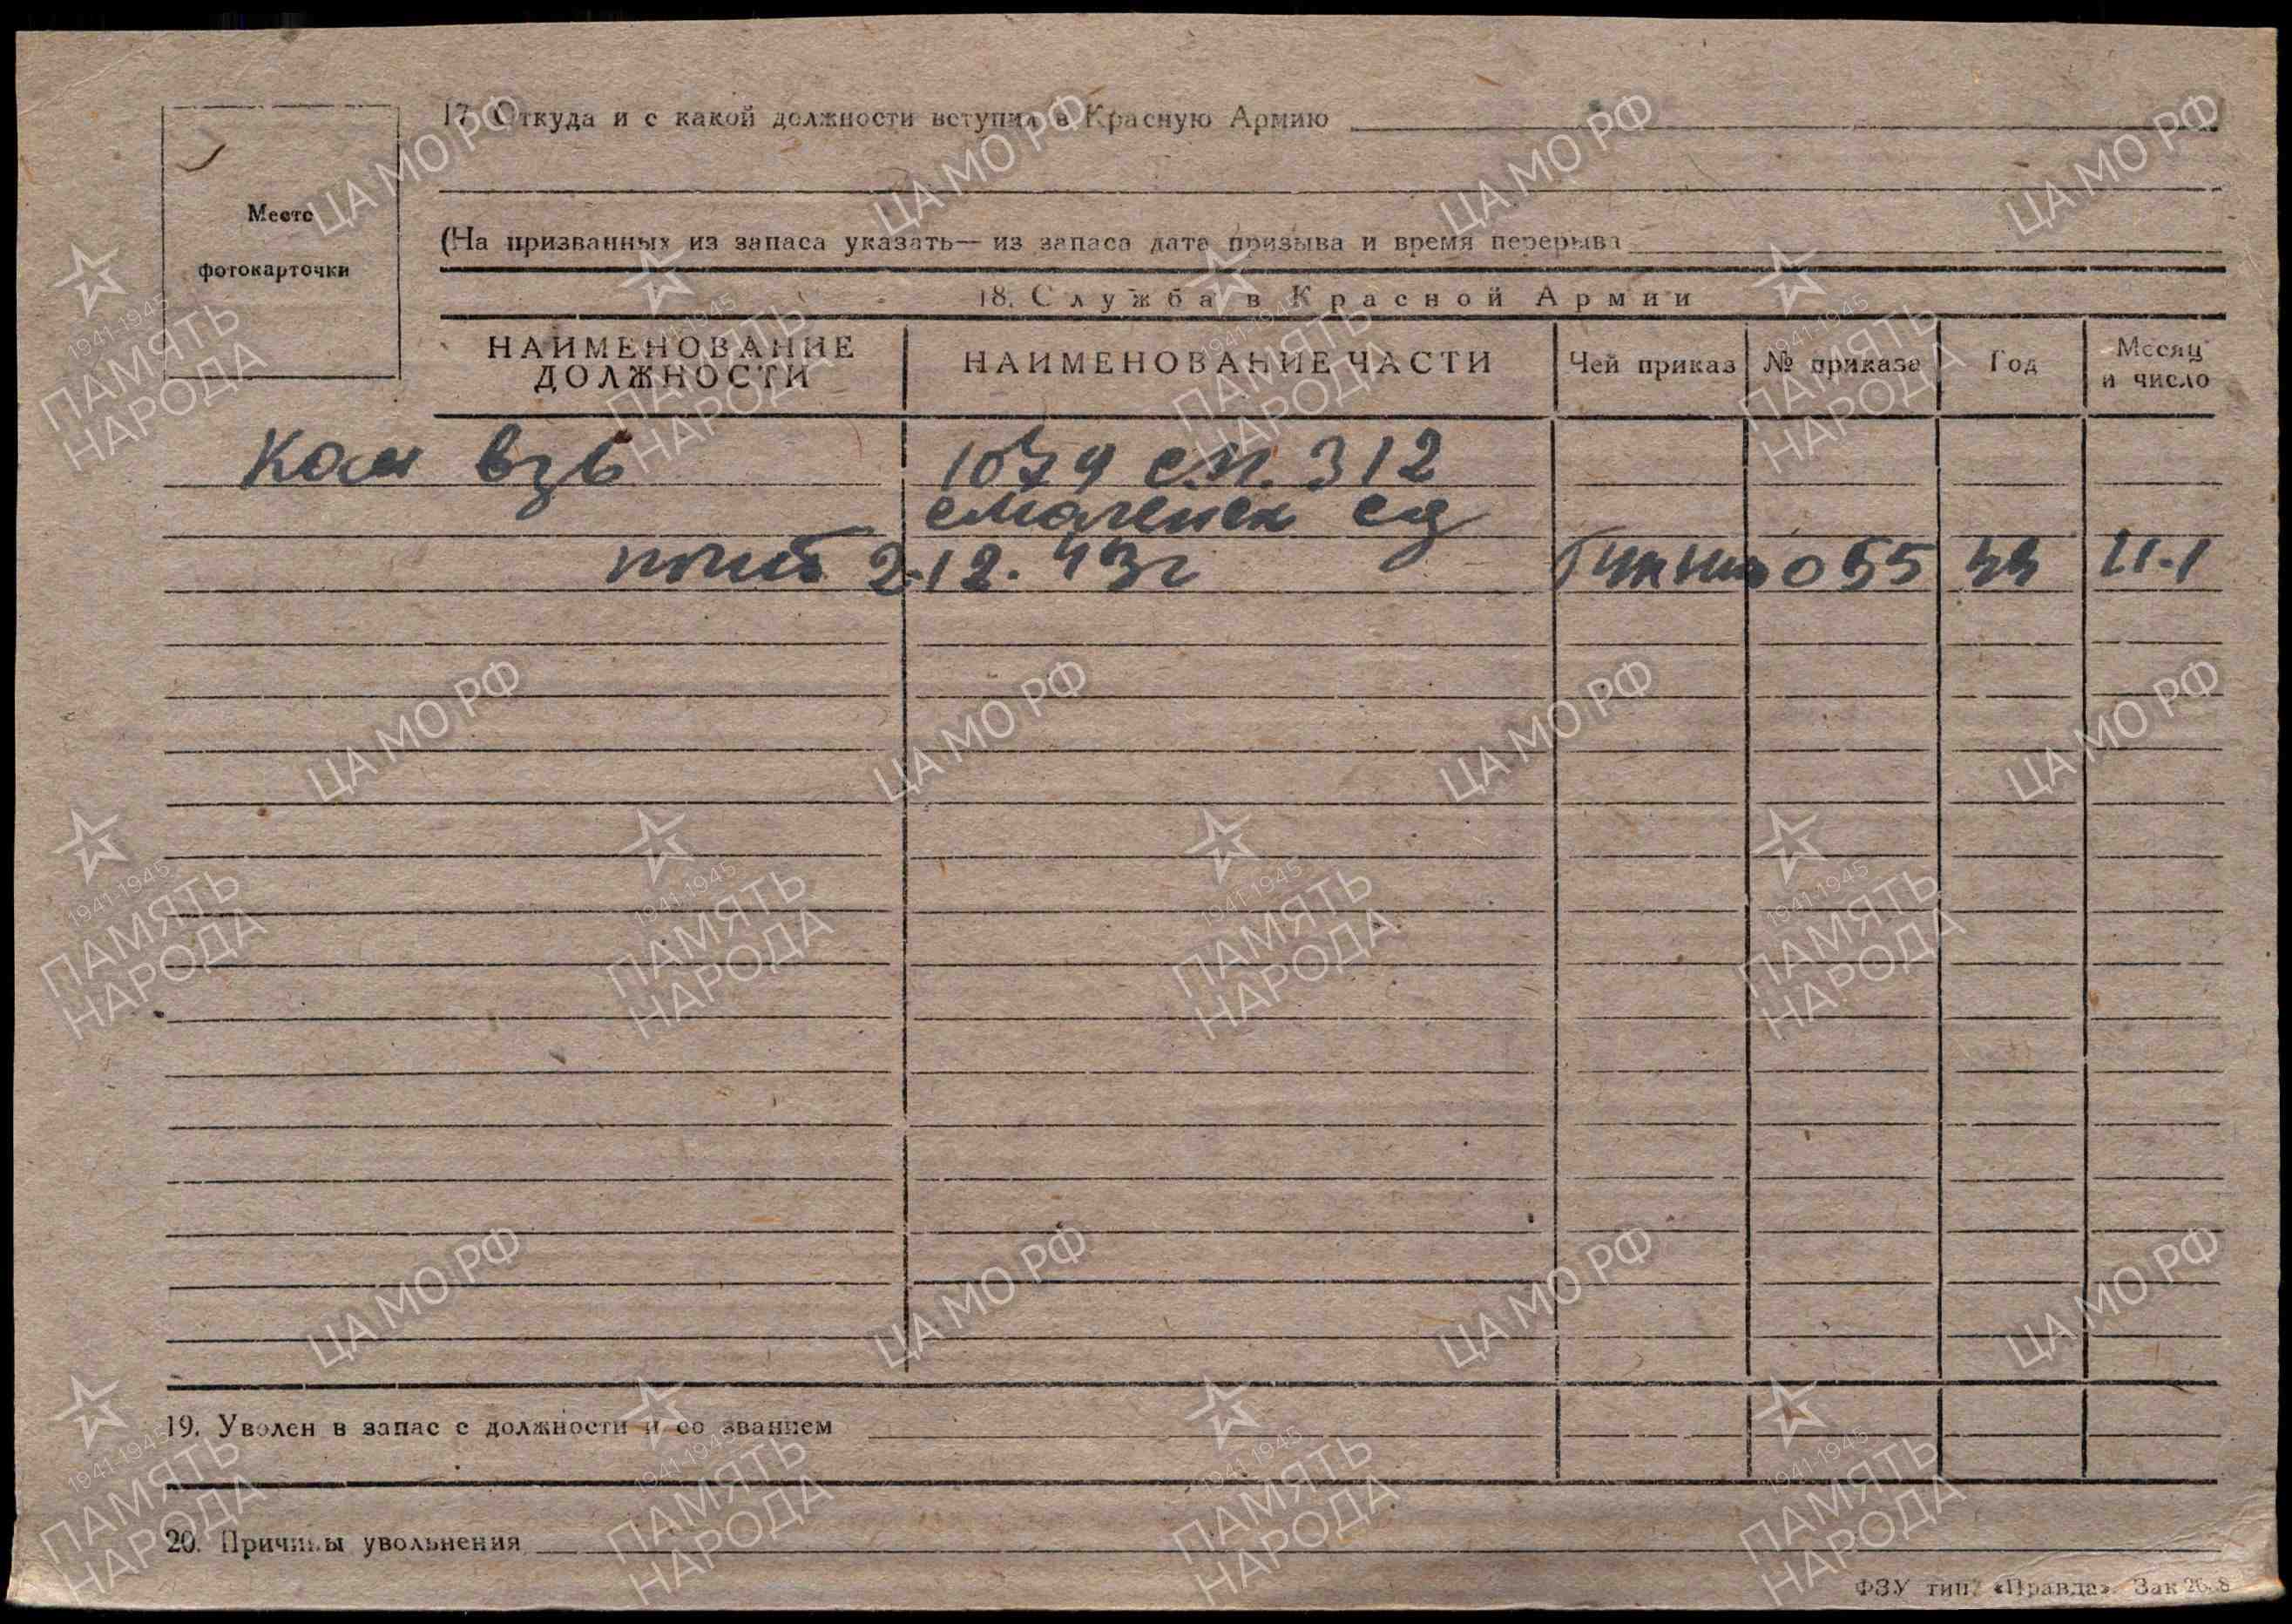 17. Откуда и с какой должности вступил в Красную Армию
Место
фотокарточки
(На призванных из запаса указать— из запаса дата призыва и время перерыва
18. Служба в Красной Армии
НАИМЕНОВАНИЕ ДОЛЖНОСТИ
НАИМЕНОВАНИЕ ЧАСТИ
Чей приказ
№ приказа
Год
Месяц и число
Ком взв
1079 сп. 312
смоленск сд
погиб 2.12.43г
055
44
11.1
19. Уволен в запас с должности и со званием
20. Причины увольнения
ФЗУ тип. «Правда». Зак
ЦА МО РФ
1941-1945
ПАМЯТЬ
НАРОДА